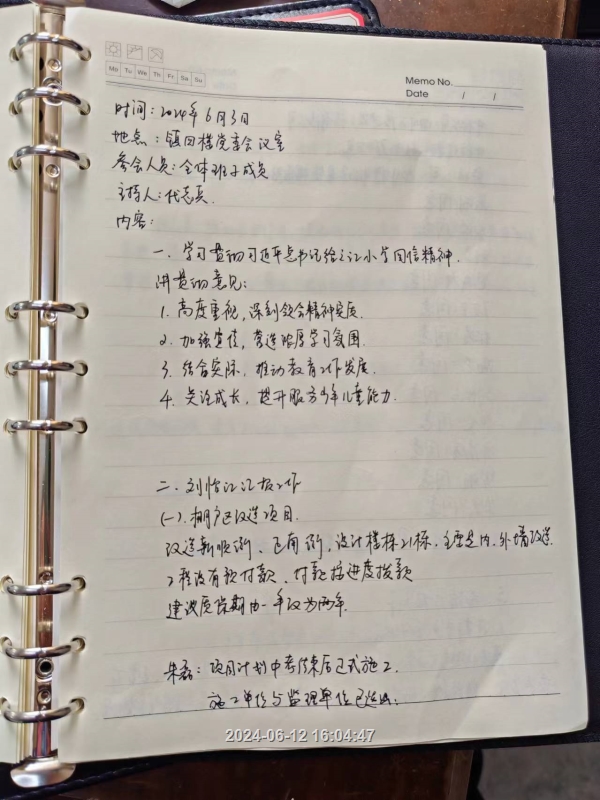 Mo Tu We Th Fr Sa Su
Memo No.
Date / /
时间：2024年6月3日
地点：镇四楼党委会议室
参会人员：全体班子成员
主持人：代志兵
内容：
一、学习贯彻习近平总书记给江小学回信精神.
讲贯彻意见：
1. 高度重视，深刻领会精神实质.
2. 加强宣传，营造浓厚学习氛围.
3. 结合实际，推动教育工作发展.
4. 关注成长，提升服务少年儿童能力.
二、刘怡江汇报工作
(一)、棚户区改造项目.
改造新顺街、正南街，设计楼栋21栋，主要是内、外墙改造.
工程没有预付款、付款按进度拨款
建议质保期由一年改为两年.
朱磊：项目计划中考结束后正式施工.
施工单位与监理单位已选出.
2024-06-12 16:04:47